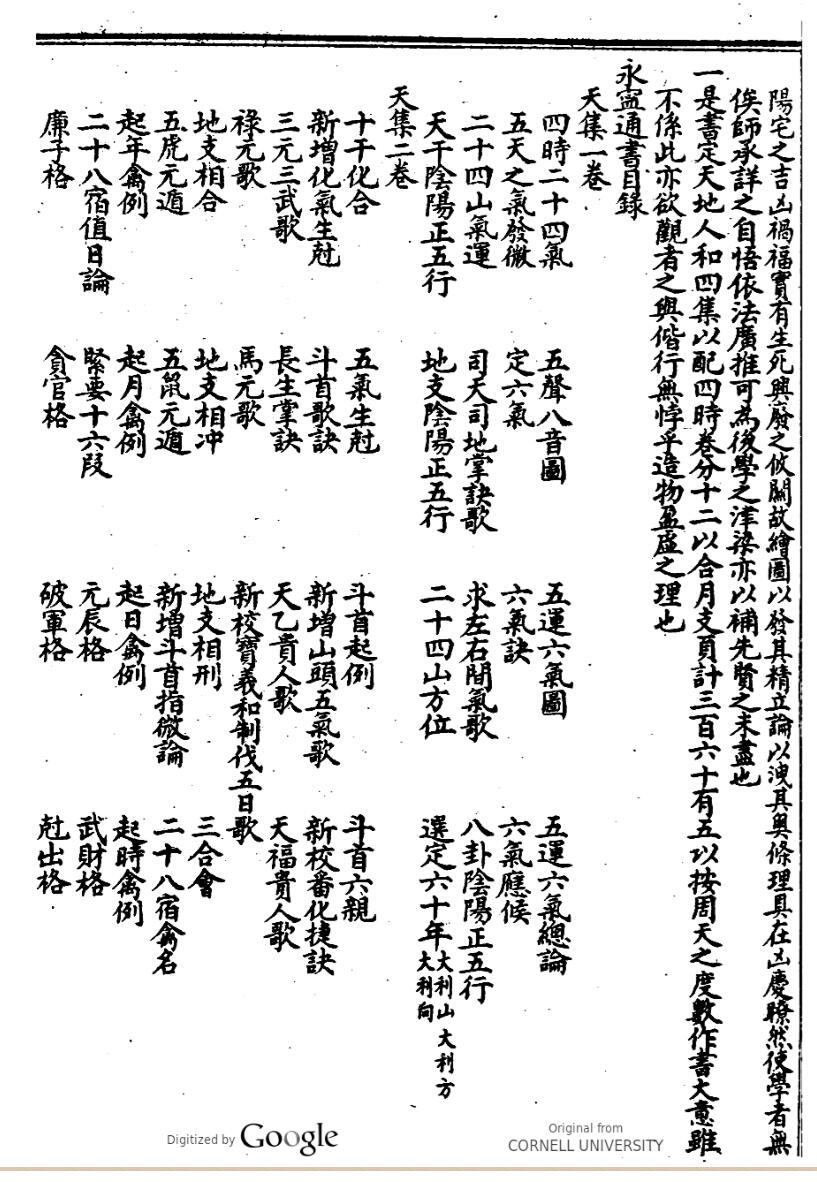 陽宅之吉凶禍福實有生死興廢之攸關故繪圖以發其精立論以洩其奧條理具在凶慶瞭然使學者無
俟師承詳之自悟依法廣推可為後學之津梁亦以補先賢之未盡也
一是書定天地人和四集以配四時卷分十二以合月支頁計三百六十有五以按周天之度數作書大意雖
不係此亦欲觀者之與偕行無悖乎造物盈虛之理也
永寧通書目錄
天集一卷
四時二十四氣 五聲八音圖 五運六氣圖 五運六氣總論
五天之氣發微 定六氣 六氣訣 六氣應候
二十四山氣運 司天司地掌訣歌 求左右間氣歌 八卦陰陽正五行
天干陰陽正五行 地支陰陽正五行 二十四山方位 選定六十年大利山 大利方 大利向
天集二卷
十干化合 五氣生尅 斗首起例 斗首六親
新增化氣生尅 斗首歌訣 新增山頭五氣歌 新校番化捷訣
三元三武歌 長生掌訣 天乙貴人歌 天福貴人歌
祿元歌 馬元歌 新校寶義和制伐五日歌
地支相合 地支相冲 地支相刑 三合會
五虎元遁 五鼠元遁 新增斗首指微論 二十八宿禽名
起年禽例 起月禽例 起日禽例 起時禽例
二十八宿值日論 緊要十六段 元辰格 武財格
廉子格 貪官格 破軍格 尅出格
Digitized by Google
Original from
CORNELL UNIVERSITY